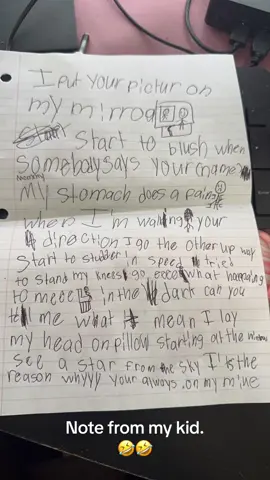 I put your pictur on
my mirror
Start Start to blush when
somebody says your name
mommy
My stomach does a pains
when I'm walking your
direction I go the other way
Start to studder in speed tried
to stand my knees go
to me in the dark can you
tell me what it mean I lay
my head on pillow starting at the
See a star from the sky I
reason whyyy your always on my mine
Note from my kid.
🤣🤣